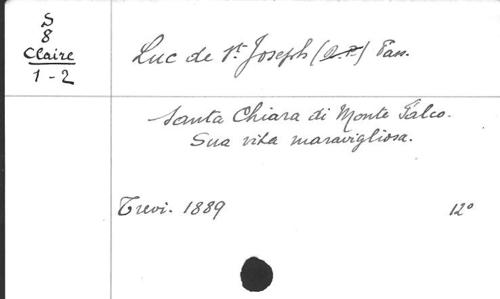 S
8
Claire
1-2
Luc de St. Joseph (R.P.) Pass.
Santa Chiara di Monte Falco.
Sua vita maravigliosa.
Trevi. 1889 12°